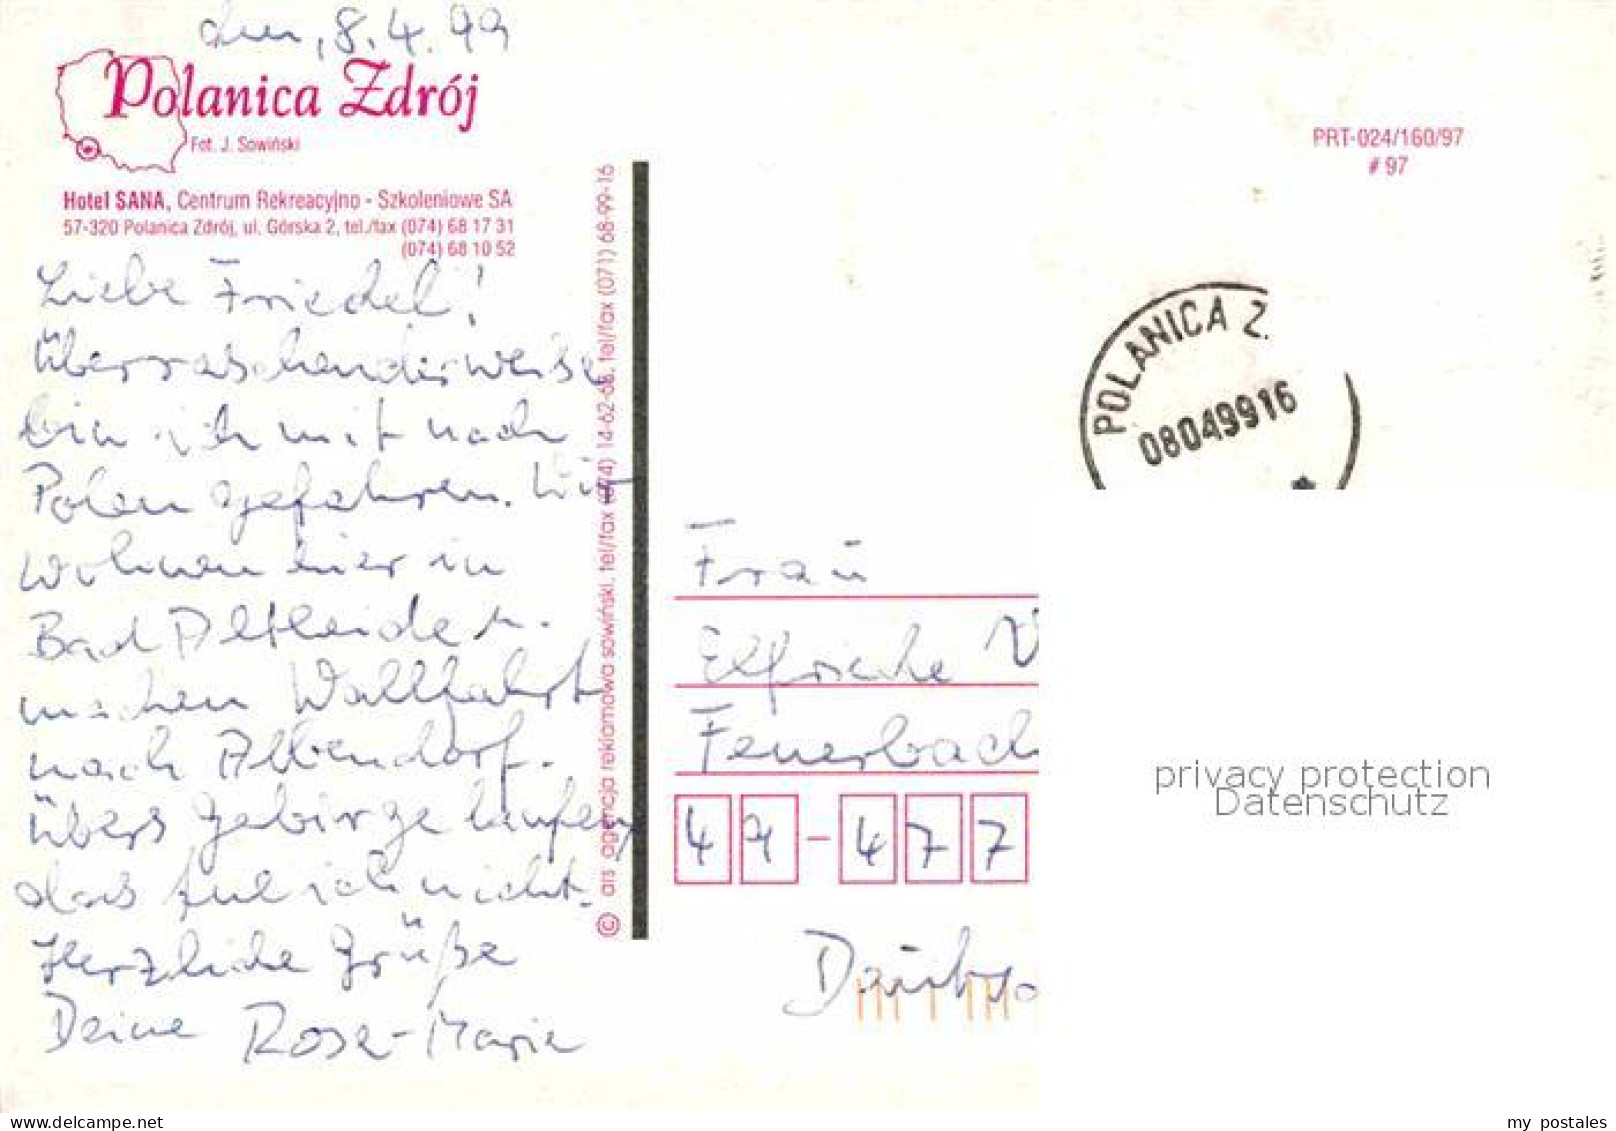 den, 8.4.99
Polanica Zdrój
Fot. J. Sowiński
Hotel SANA, Centrum Rekreacyjno - Szkoleniowe SA
57-320 Polanica Zdrój, ul. Górska 2, tel./fax (074) 68 17 31
(074) 68 10 52
Liebe Friedel!
Überraschenderweise
bin ich mit nach
Polen gefahren. Wir
wohnen hier in
Bad Altheide u.
machen Wallfahrt
nach Albendorf.
übers Gebirge laufen,
das tue ich nicht.
Herzliche Grüße
Deine Rose-Marie
© ars agencja reklamowa sowiński, tel/fax (074) 14-62-66, tel/fax (071) 68-99-16
PRT-024/160/97
# 97
POLANICA Z.
08049916
Frau
Elfriede V
Feuerbach
49-477
privacy protection
Datenschutz
delcampe.net
my_postales